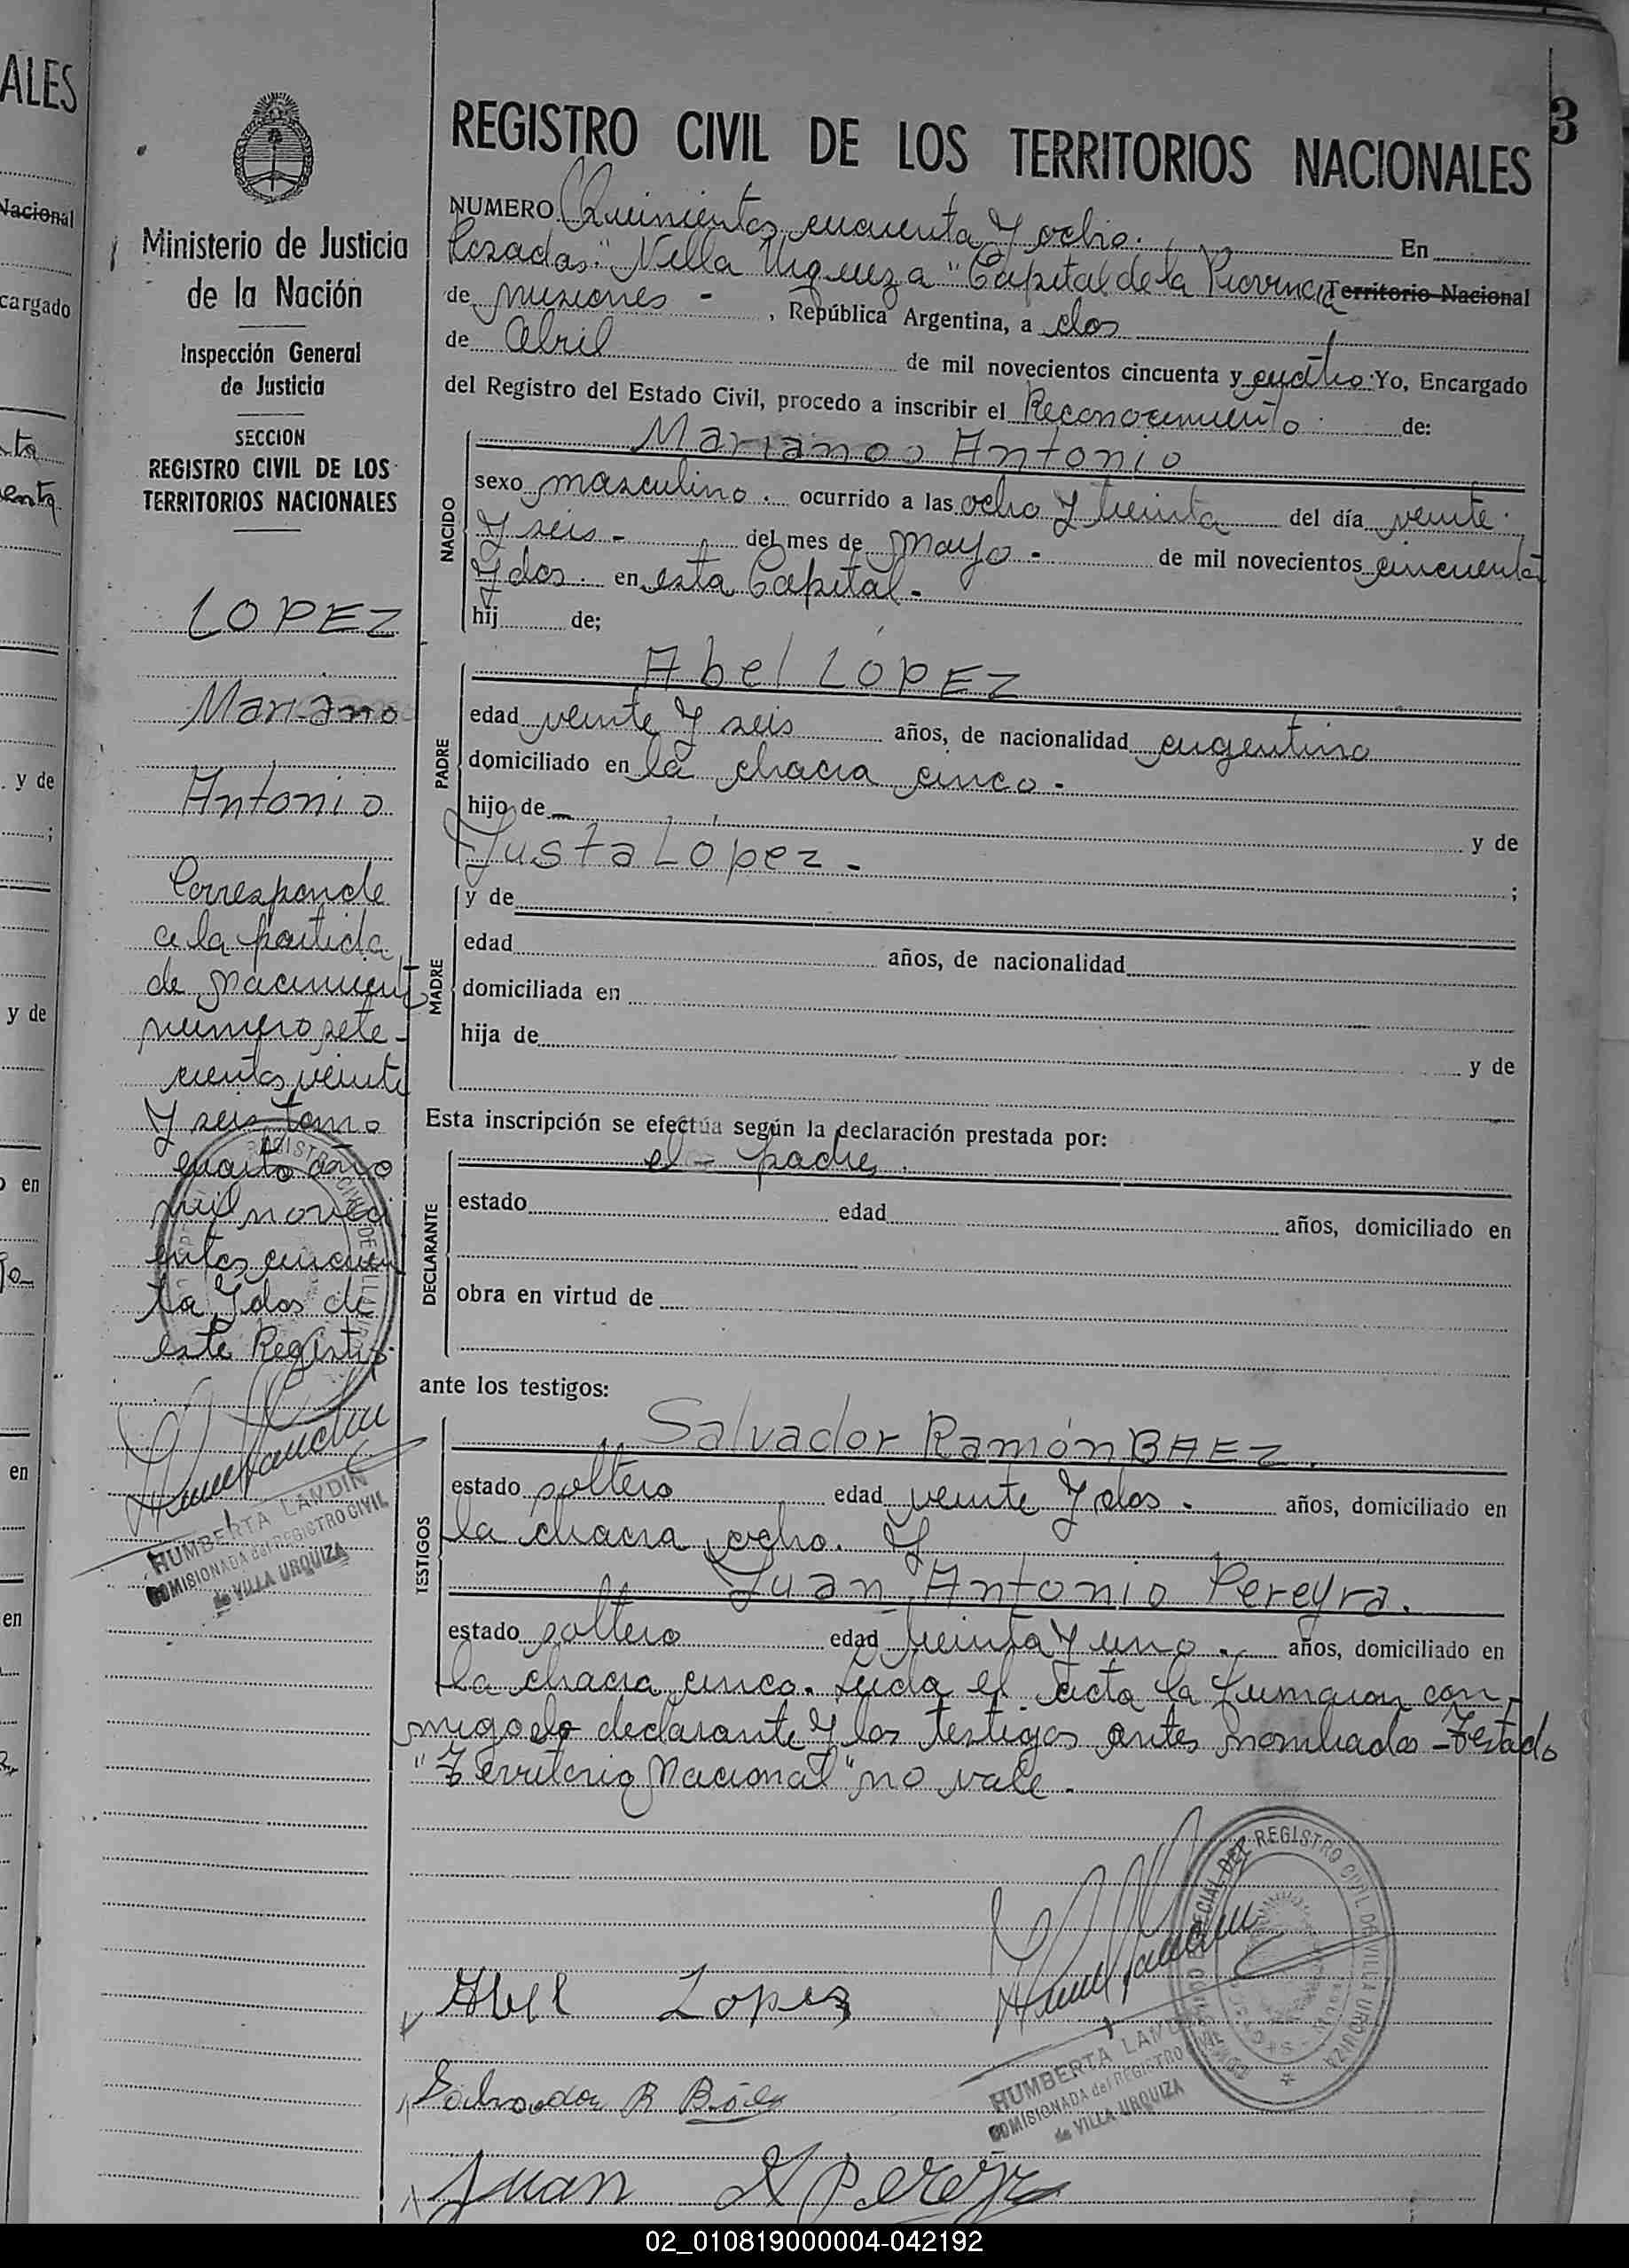 ALES
Nacional
cargado
nta
enta
y de
;
y de
o en
en
en
Ministerio de Justicia
de la Nación
Inspección General
de Justicia
SECCION
REGISTRO CIVIL DE LOS
TERRITORIOS NACIONALES
LOPEZ
Mariano
Antonio
Corresponde
a la partida
de nacimiento
número sete-
cientos veinte
y seis tomo
cuarto año
mil noveci
entos cincuen
ta y dos de
este Registro
HUMBERTA LANDIN
COMISIONADA del REGISTRO CIVIL
de VILLA URQUIZA
3
REGISTRO CIVIL DE LOS TERRITORIOS NACIONALES
NUMERO Quinientos cincuenta y ocho. En
Posadas "Villa Urquiza" Capital de la Provincia Territorio Nacional
de Misiones - , República Argentina, a dos
de Abril de mil novecientos cincuenta y cuatro. Yo, Encargado
del Registro del Estado Civil, procedo a inscribir el Reconocimiento de:
Mariano Antonio
NACIDO
sexo masculino. ocurrido a las ocho y treinta del día veinte
y seis - del mes de mayo - de mil novecientos cincuenta
y dos. en esta Capital.-
hij de;
Abel LÓPEZ
PADRE
edad veinte y seis años, de nacionalidad argentino
domiciliado en la chacra cinco.
hijo de — y de
Justa López - ;
y de
MADRE
edad años, de nacionalidad
domiciliada en
hija de y de
Esta inscripción se efectúa según la declaración prestada por:
el - padre.
DECLARANTE
estado edad años, domiciliado en
obra en virtud de
ante los testigos:
Salvador Ramón BAEZ.
TESTIGOS
estado soltero edad veinte y dos. años, domiciliado en
la chacra ocho. y
Juan Antonio Pereyra.
estado soltero edad treinta y uno. años, domiciliado en
la chacra cinco. Leida el acta la firmaron con-
migo el declarante y los testigos antes nombrados - Testado
"Territorio Nacional" no vale.
REGISTRO CIVIL DE VILLA URQUIZA
Abel Lopez
HUMBERTA LANDIN
COMISIONADA del REGISTRO CIVIL
de VILLA URQUIZA
Salvador R Báez
Juan A Pereyra
02_010819000004-042192